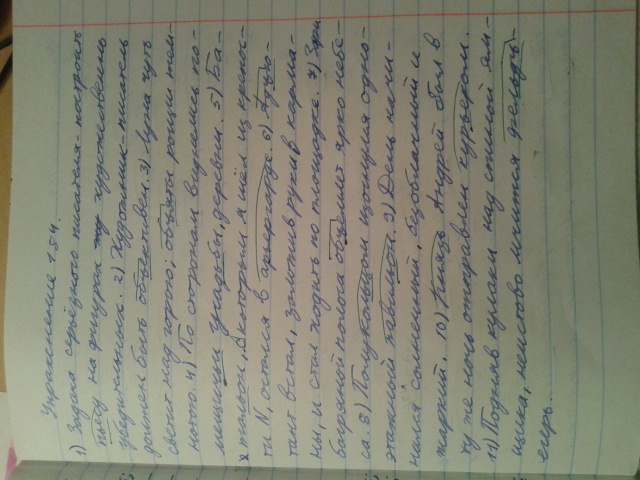 Упражнение 154.
1) Задача серьёзного писателя - построить
пьесу на фигурах художественно
убедительных. 2) Художник-писатель
должен быть объективен. 3) Луна чуть
светит над горою; объяты рощи тем-
нотою. 4) По сторонам виднелись по-
мещичьи усадьбы, деревни. 5) Ба-
тальон, с которым я шёл из крепос-
ти N, остался в арьергарде. 6) Адъю-
тант встал, заложив руки в карма-
ны, и стал ходить по площадке. 7) Заря
багряной полосой объемлет ярко небе-
са. 8) Полукольцом изогнулся одно-
этажный павильон. 9) День начи-
нался солнечный, безоблачный и
жаркий. 10) Князь Андрей был в
ту же ночь отправлен курьером.
11) Подняв кулаки над спиной ям-
щика, неистово мчится фельдъ-
егерь.